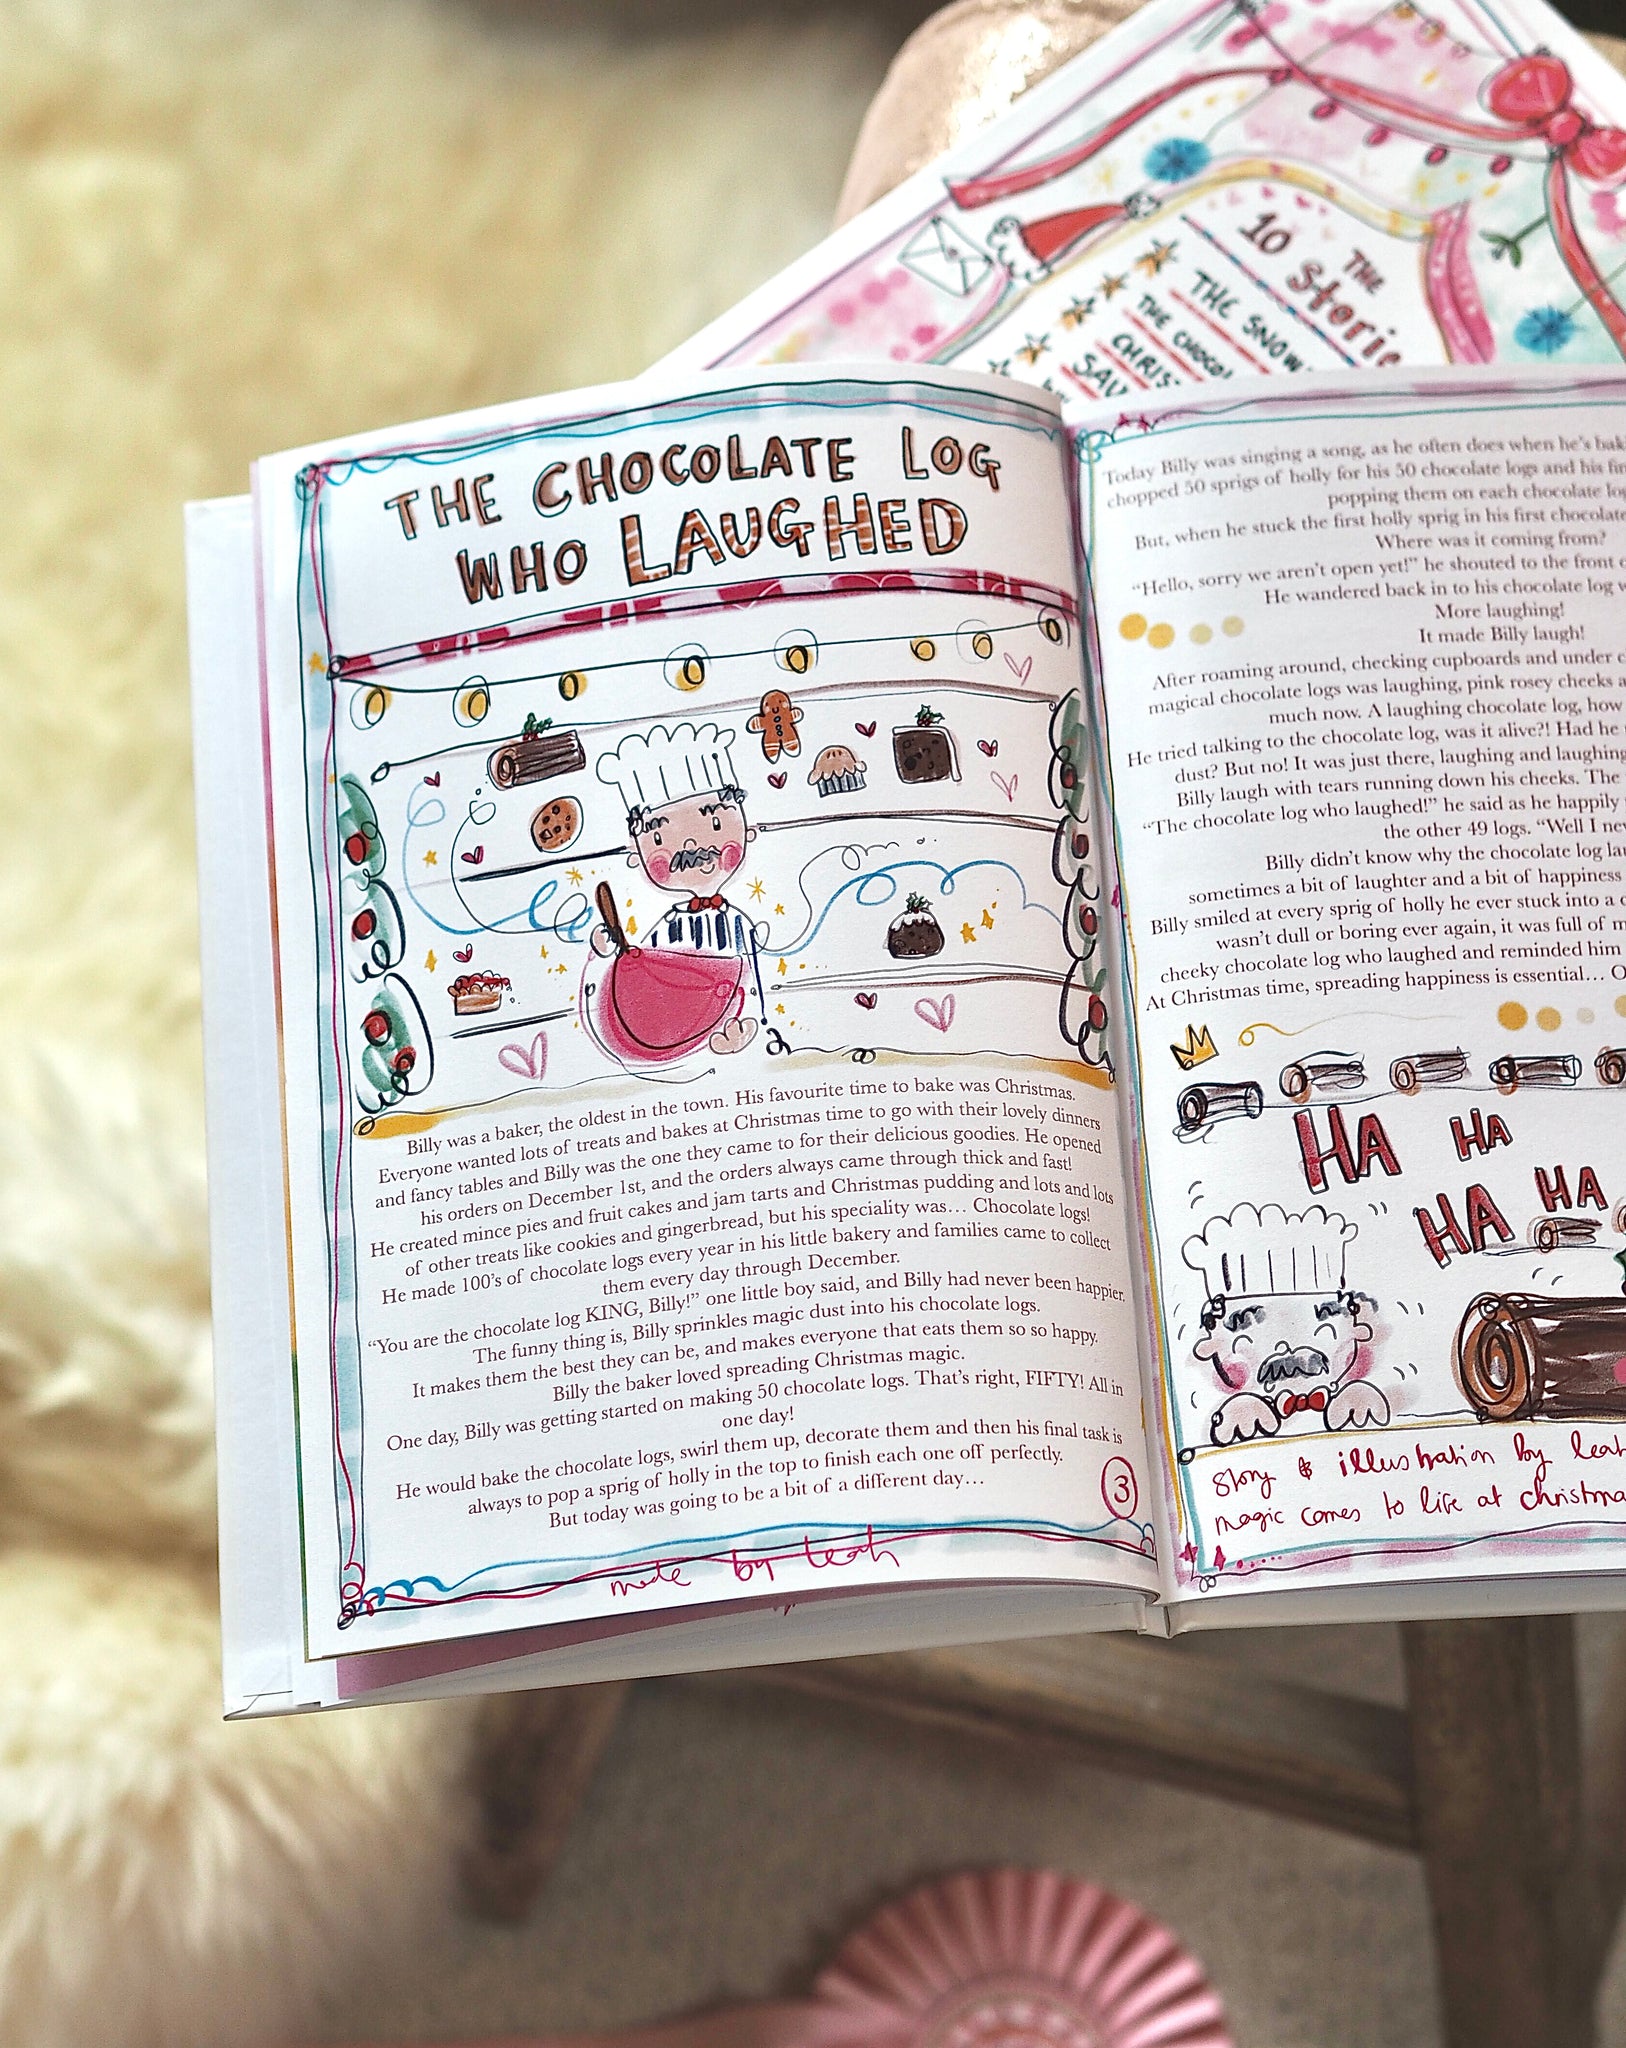 THE
10 Stories
THE SNOW
THE CHOCO
CHRIS
SAV
THE CHOCOLATE LOG
WHO LAUGHED
Billy was a baker, the oldest in the town. His favourite time to bake was Christmas.
Everyone wanted lots of treats and bakes at Christmas time to go with their lovely dinners
and fancy tables and Billy was the one they came to for their delicious goodies. He opened
his orders on December 1st, and the orders always came through thick and fast!
He created mince pies and fruit cakes and jam tarts and Christmas pudding and lots and lots
of other treats like cookies and gingerbread, but his speciality was... Chocolate logs!
He made 100's of chocolate logs every year in his little bakery and families came to collect
them every day through December.
“You are the chocolate log KING, Billy!” one little boy said, and Billy had never been happier.
The funny thing is, Billy sprinkles magic dust into his chocolate logs.
It makes them the best they can be, and makes everyone that eats them so so happy.
Billy the baker loved spreading Christmas magic.
One day, Billy was getting started on making 50 chocolate logs. That's right, FIFTY! All in
one day!
He would bake the chocolate logs, swirl them up, decorate them and then his final task is
always to pop a sprig of holly in the top to finish each one off perfectly.
But today was going to be a bit of a different day...
3
made by leah
Today Billy was singing a song, as he often does when he's bak
chopped 50 sprigs of holly for his 50 chocolate logs and his fin
popping them on each chocolate log
But, when he stuck the first holly sprig in his first chocolate
Where was it coming from?
“Hello, sorry we aren't open yet!” he shouted to the front
He wandered back in to his chocolate log
More laughing!
It made Billy laugh!
After roaming around, checking cupboards and under
magical chocolate logs was laughing, pink rosey cheeks
much now. A laughing chocolate log, how
He tried talking to the chocolate log, was it alive?! Had he
dust? But no! It was just there, laughing and laughing
Billy laugh with tears running down his cheeks. The
“The chocolate log who laughed!” he said as he happily
the other 49 logs. “Well I nev
Billy didn't know why the chocolate log lau
sometimes a bit of laughter and a bit of happiness
Billy smiled at every sprig of holly he ever stuck into a
wasn't dull or boring ever again, it was full of m
cheeky chocolate log who laughed and reminded him
At Christmas time, spreading happiness is essential... O
HA HA
HA HA
story & illustration by leah
magic comes to life at christma